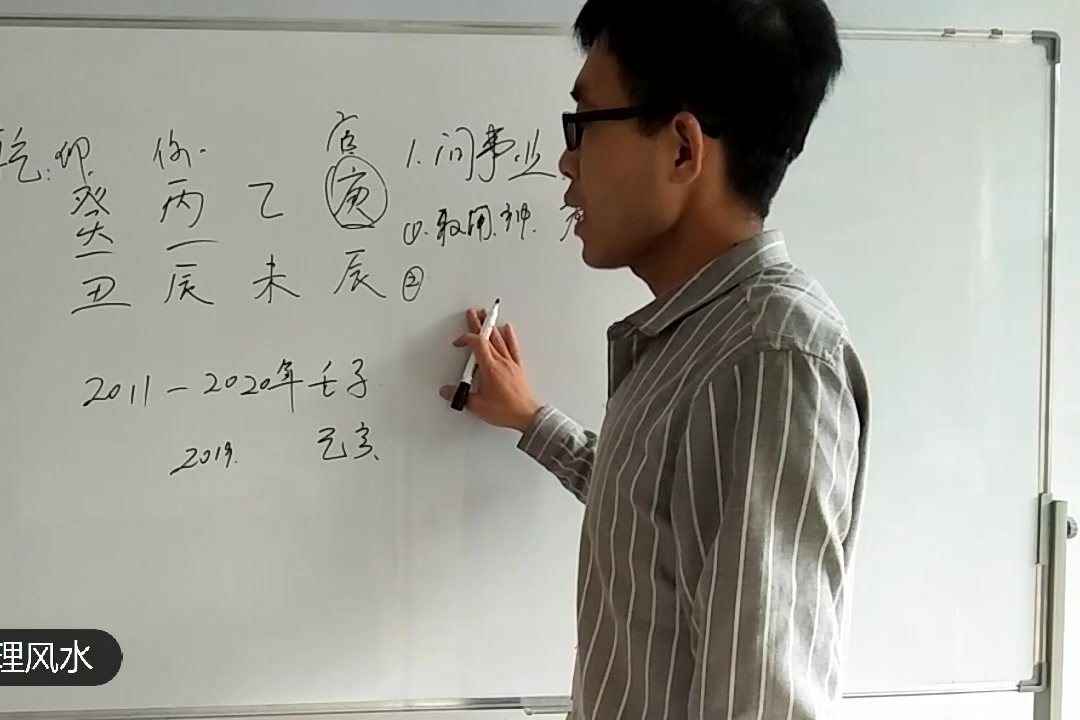 乾: 印 伤 官 1. 问事业
癸 丙 乙 庚 ①. 取用神.
丑 辰 未 辰 ②
2011-2020年 壬子
2019. 己亥
理风水